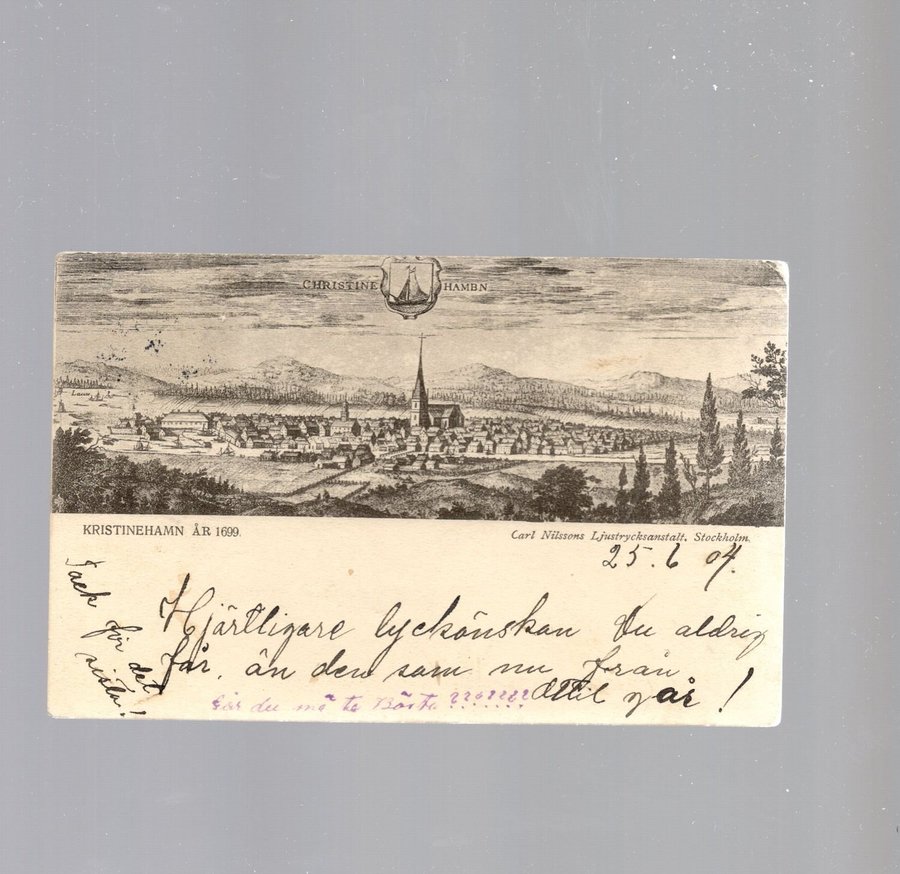 CHRISTINE HAMBN
KRISTINEHAMN ÅR 1699.
Carl Nilssons Ljustrycksanstalt, Stockholm.
25. 6 04.
Tack för det sista!
Hjärtligare lyckönskan Du aldrig
får, än den som nu från
Ottil går!
du må te Bästa